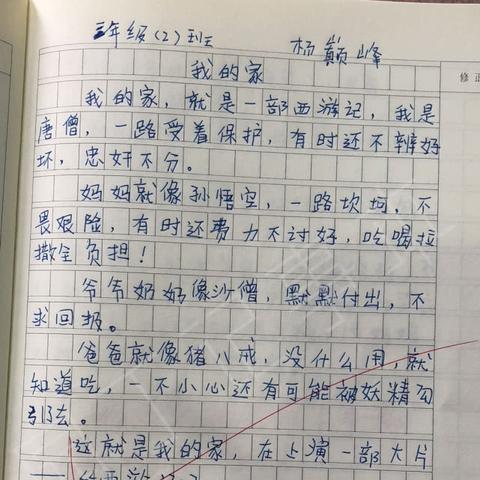 三年级（2）班 杨巅峰
我的家
我的家，就是一部西游记，我是
唐僧，一路受着保护，有时还不辨好
坏，忠奸不分。
妈妈就像孙悟空，一路坎坷，不
畏艰险，有时还费力不讨好，吃喝拉
撒全负担！
爷爷奶奶像沙僧，默默付出，不
求回报。
爸爸就像猪八戒，没什么用，就
知道吃，一不小心还有可能被妖精勾
引去。
这就是我的家，在上演一部大片
——
修